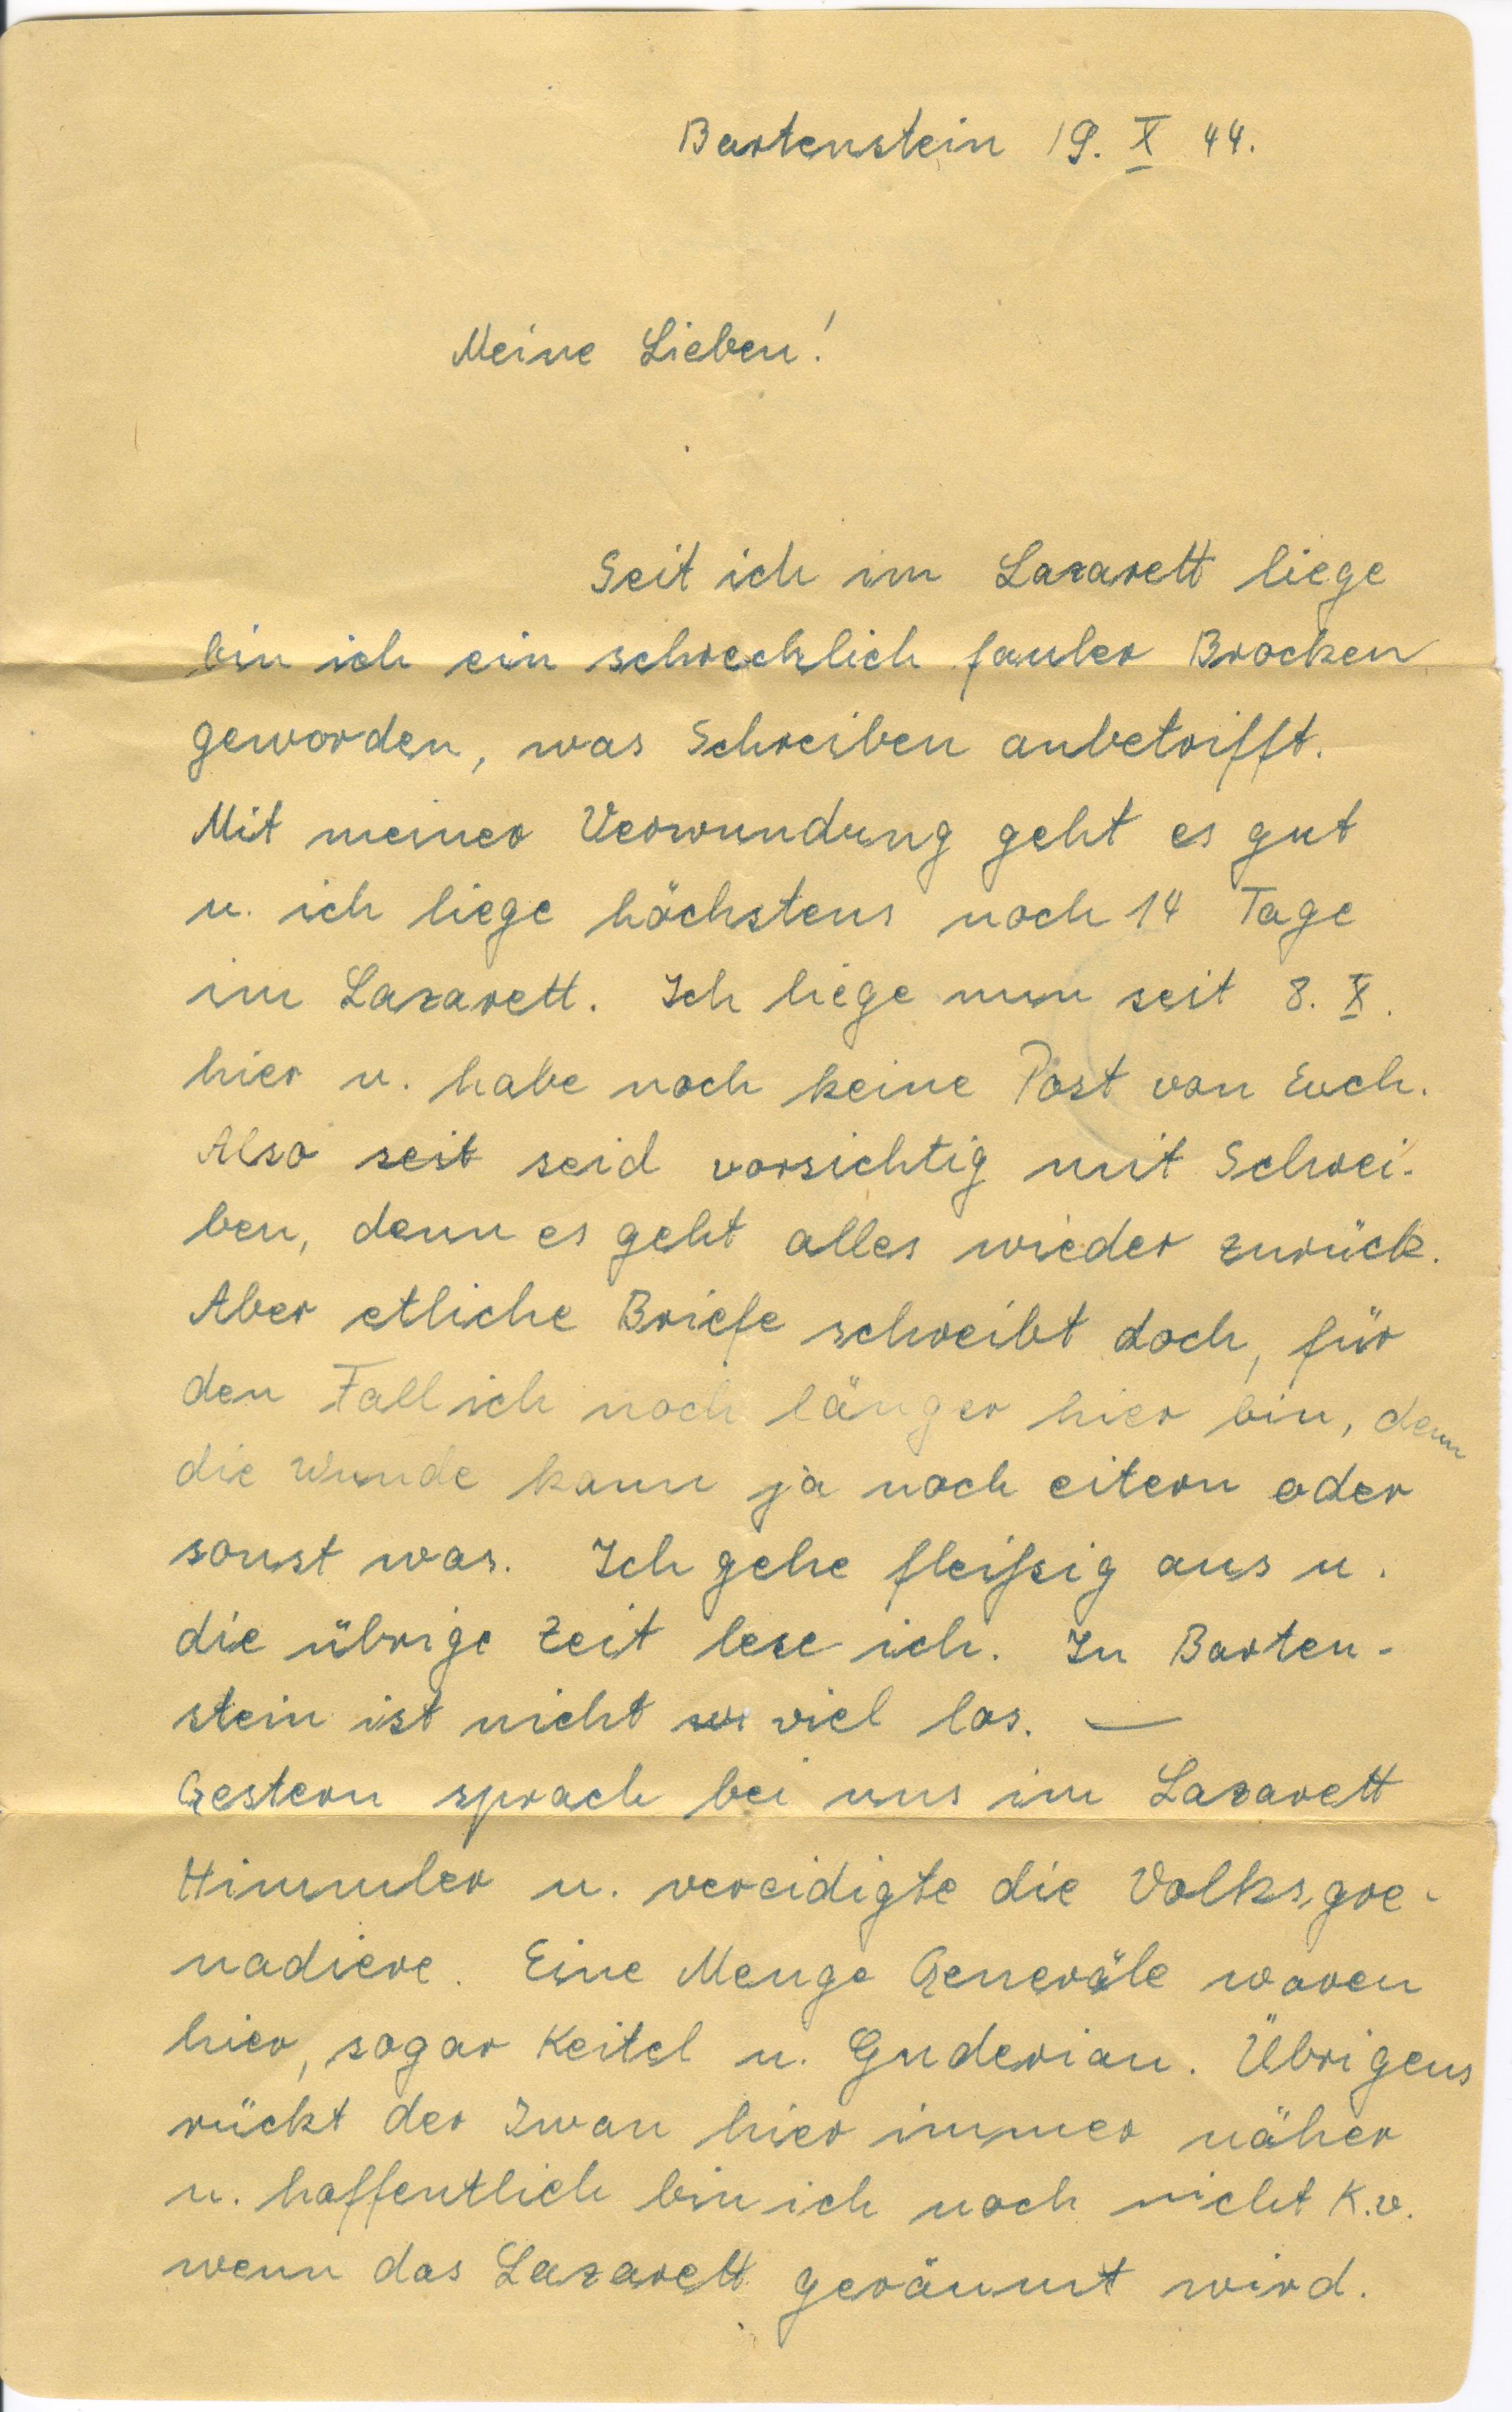 Bartenstein 19. X 44.
Meine Lieben!
Seit ich im Lazarett liege
bin ich ein schrecklich fauler Brocken
geworden, was Schreiben anbetrifft.
Mit meiner Verwundung geht es gut
u. ich liege höchstens noch 14 Tage
im Lazarett. Ich liege nun seit 8. X.
hier u. habe noch keine Post von Euch.
Also seit seid vorsichtig mit Schrei-
ben, denn es geht alles wieder zurück.
Aber etliche Briefe schreibt doch, für
den Fall ich noch länger hier bin, denn
die Wunde kann ja noch eitern oder
sonst was. Ich gehe fleißig aus u.
die übrige Zeit lese ich. In Barten-
stein ist nicht viel los. —
Gestern sprach bei uns im Lazarett
Himmler u. vereidigte die Volksgre-
nadiere. Eine Menge Generäle waren
hier, sogar Keitel u. Guderian. Übrigens
rückt der Iwan hier immer näher
u. hoffentlich bin ich noch nicht K.v.
wenn das Lazarett geräumt wird.